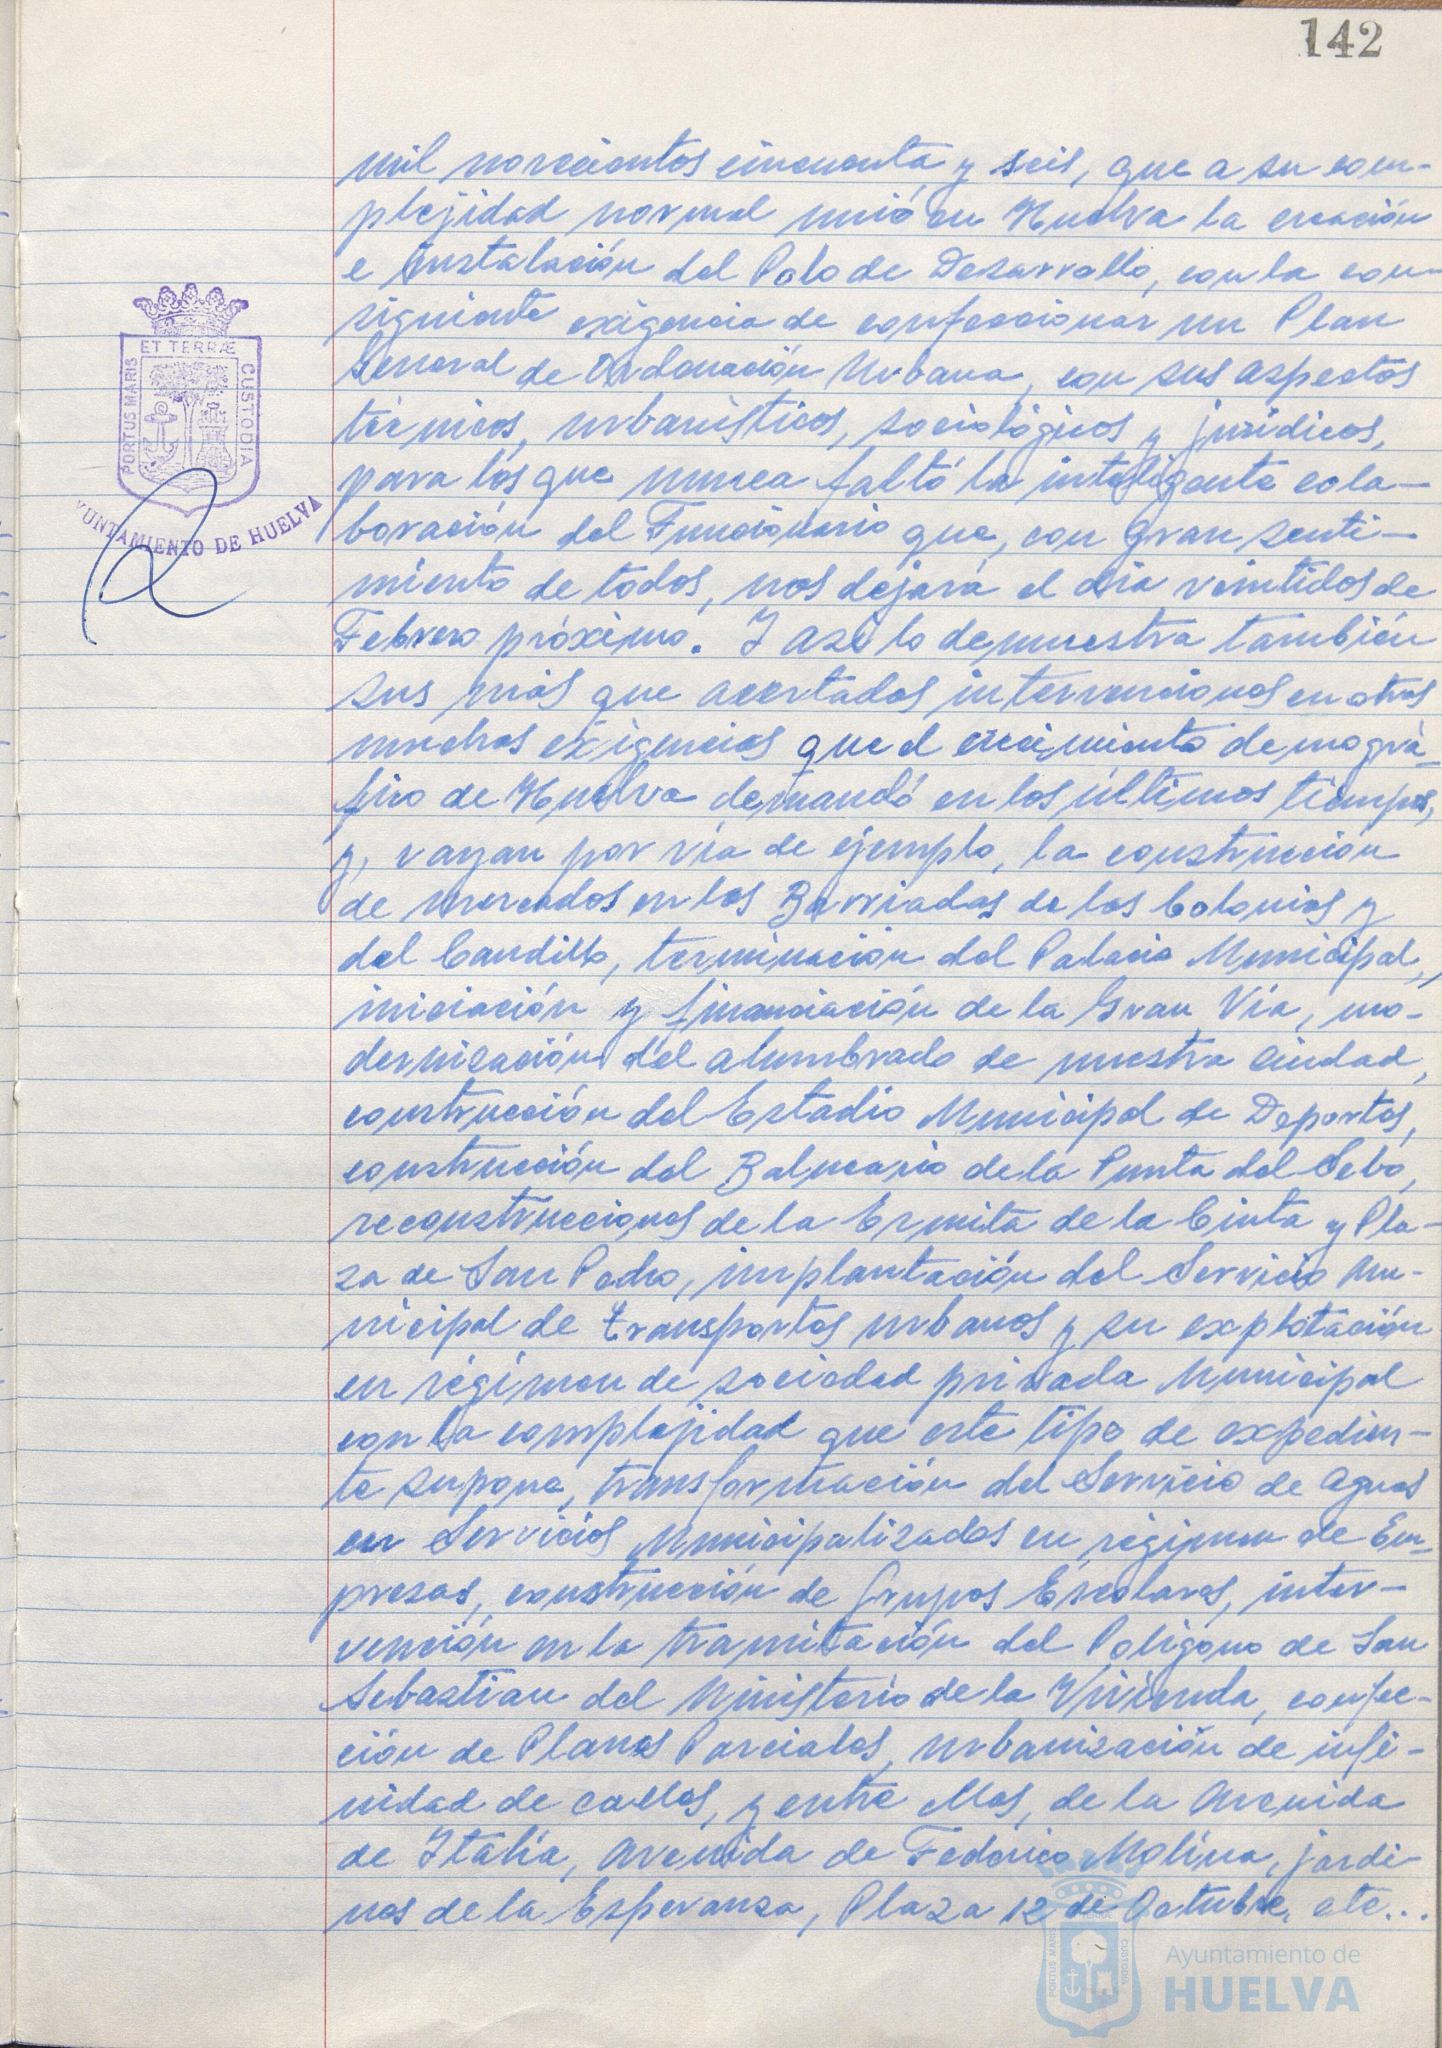 142
mil novecientos cincuenta y seis, que a su com-
plejidad normal unió en Huelva la creación
e instalación del Polo de Desarrollo, con la con-
siguiente exigencia de confeccionar un Plan
General de Ordenación Urbana, con sus aspectos
técnicos, urbanísticos, sociológicos y jurídicos,
para los que nunca faltó la inteligente cola-
boración del Funcionario que, con gran senti-
miento de todos, nos dejará el día veintidos de
Febrero próximo. Y asi lo demuestra también
sus más que acertadas intervenciones en otras
muchas exigencias que el crecimiento demográ-
fico de Huelva demandó en los últimos tiempos,
y, vayan por vía de ejemplo, la construcción
de mercados en las Barriadas de las Colonias y
del Caudillo, terminación del Palacio Municipal,
iniciación y financiación de la Gran Vía, mo-
dernización del alumbrado de nuestra Ciudad,
construcción del Estadio Municipal de Deportes,
construcción del Balneario de la Punta del Sebo,
reconstrucciones de la Ermita de la Cinta y Pla-
za de San Pedro, implantación del Servicio Mu-
nicipal de transportes urbanos y su explotación
en régimen de sociedad privada Municipal
con la complejidad que este tipo de expedien-
te supone, transformación del Servicio de aguas
en Servicios Municipalizados en régimen de Em-
presas, construcción de Grupos Escolares, inter-
vención en la tramitación del Polígono de San
Sebastian del Ministerio de la Vivienda, confec-
ción de Planes Parciales, urbanización de infi-
nidad de calles, y entre ellas, de la Avenida
de Italia, Avenida de Federico Molina, jardi-
nes de la Esperanza, Plaza 12 de Octubre, etc...
PORTUS MARIS
ET TERRÆ
CUSTODIA
YUNTAMIENTO DE HUELVA
PORTUS MARIS
CUSTODIA
Ayuntamiento de
HUELVA